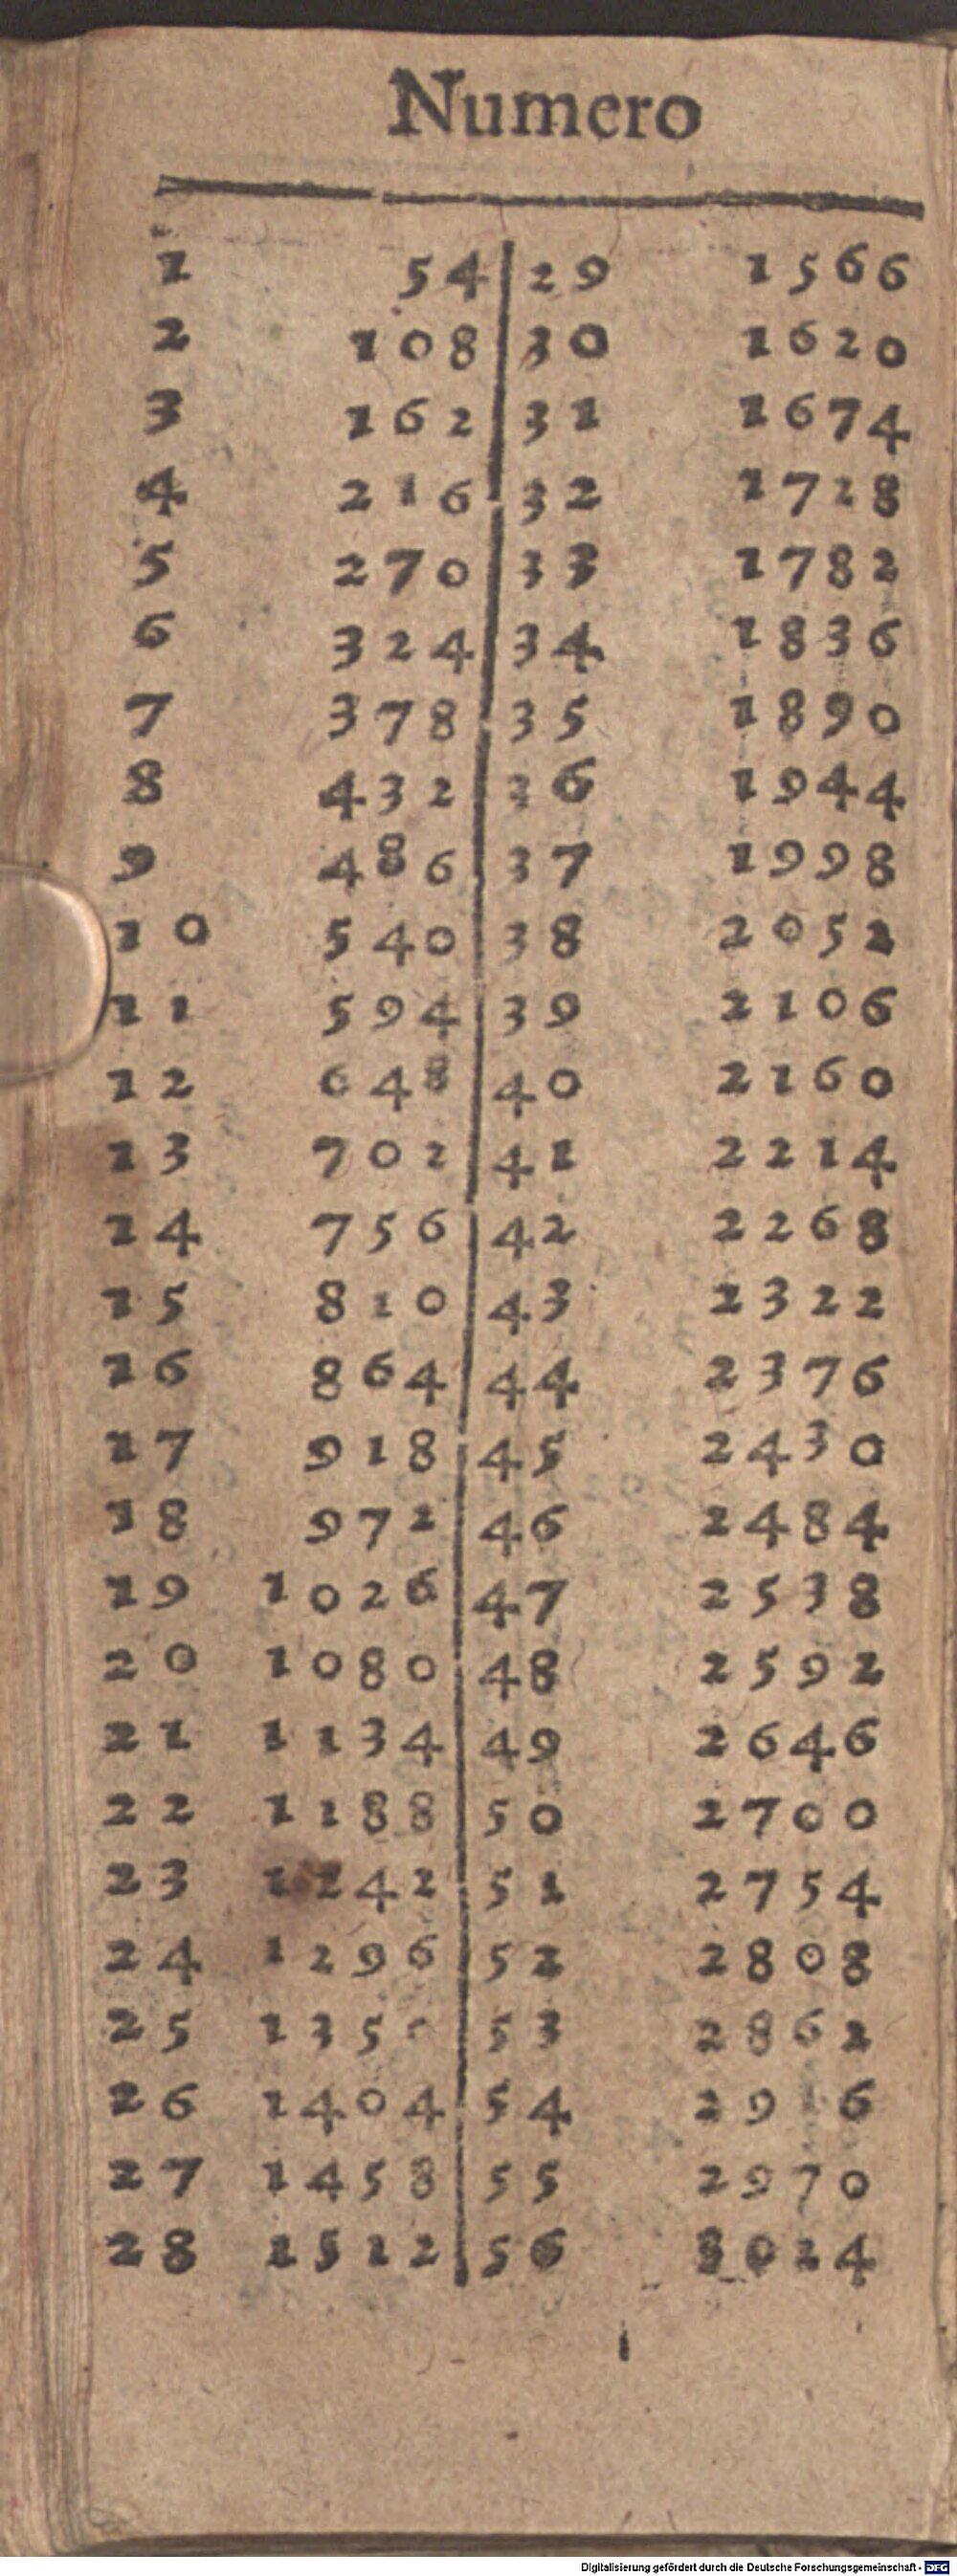 Numero
1 54 29 1566
2 108 30 1620
3 162 31 1674
4 216 32 1728
5 270 33 1782
6 324 34 1836
7 378 35 1890
8 432 36 1944
9 486 37 1998
10 540 38 2052
11 594 39 2106
12 648 40 2160
13 702 41 2214
14 756 42 2268
15 810 43 2322
16 864 44 2376
17 918 45 2430
18 972 46 2484
19 1026 47 2538
20 1080 48 2592
21 1134 49 2646
22 1188 50 2700
23 1242 51 2754
24 1296 52 2808
25 1350 53 2862
26 1404 54 2916
27 1458 55 2970
28 1512 56 3024
Digitalisierung gefördert durch die Deutsche Forschungsgemeinschaft - DFG